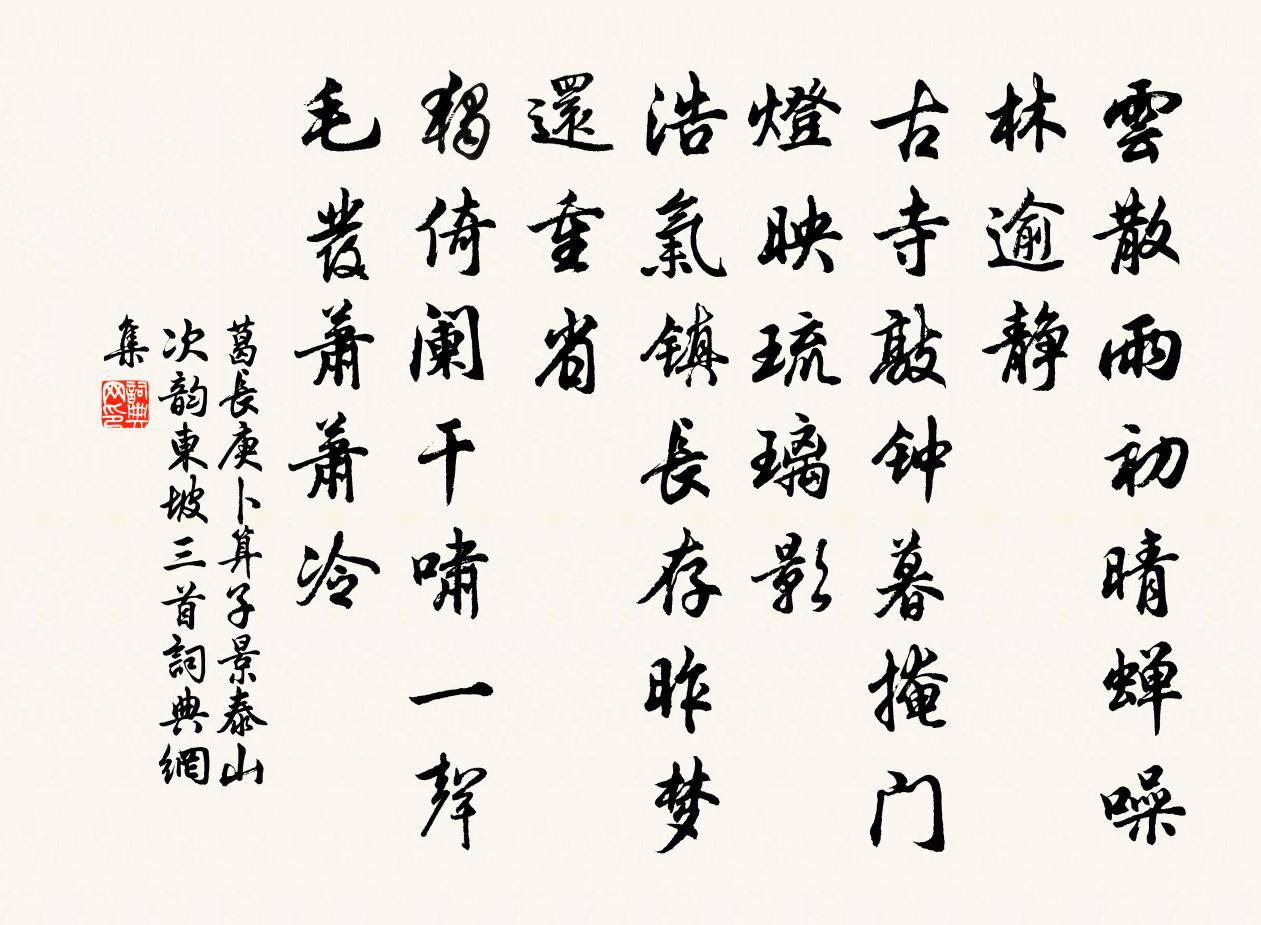 雲散雨初晴蝉噪
林逾静
古寺敲钟暮掩门
燈映琉璃影
浩氣镇長存昨梦
還重省
獨倚阑干嘯一聲
毛發蕭蕭冷
葛長庚卜算子景泰山
次韵東坡三首詞典網
集
詞典网印